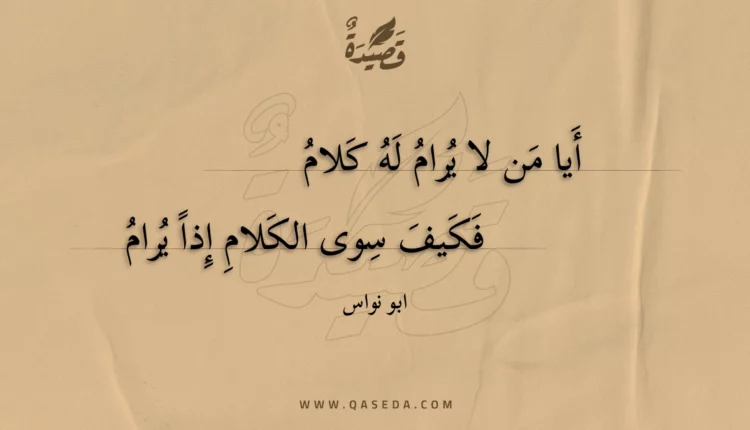 قَصِيدَةٌ
أَيا مَن لا يُرامُ لَهُ كَلامُ
فَكَيفَ سِوى الكَلامِ إِذاً يُرامُ
ابو نواس
WWW.QASEDA.COM